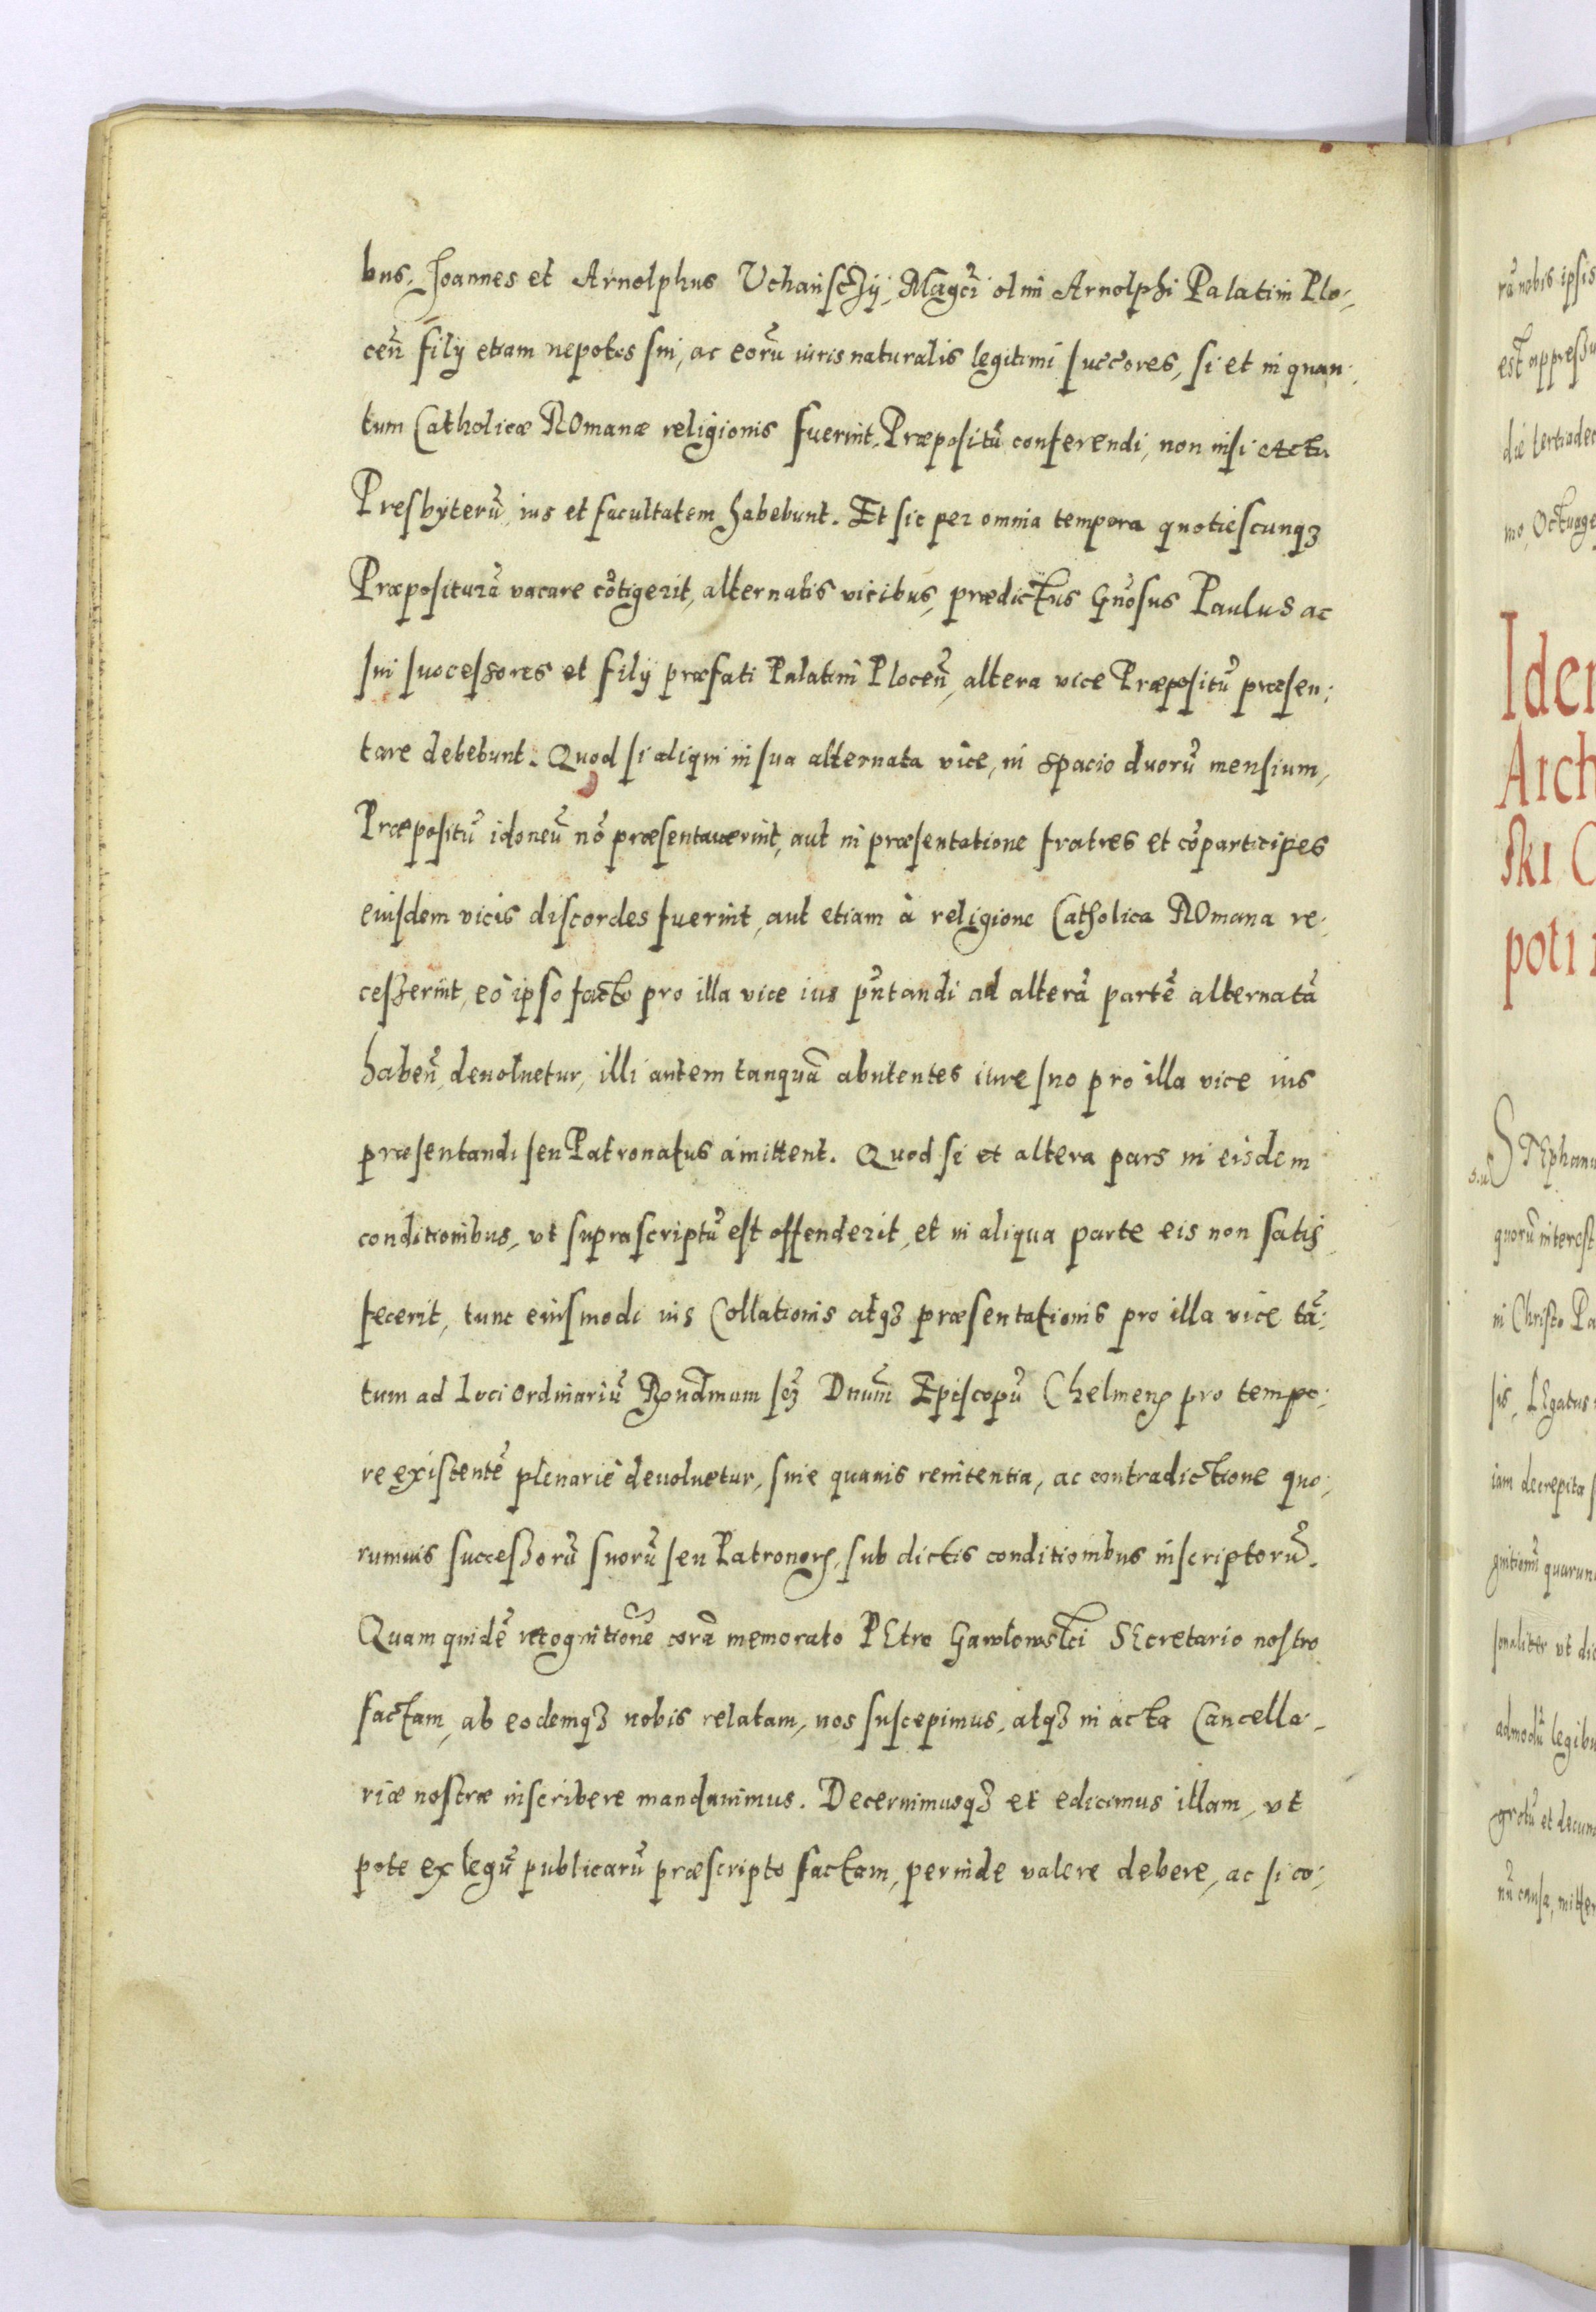 bus, Joannes et Arnolphus Vchanscÿ, Magci olim Arnolphi Palatini Plo-
ceñ filÿ etiam nepotes sui, ac eorũ iuris naturalis legitimi succores, si et in quan-
tum Catholicæ ROmanæ religionis fuerint. Præpositũ conferendi, non nisi actu
Presbyterũ, ius et facultatem habebunt. Et sic per omnia tempora quotiescunqꝫ
Præpositurã vacare cõtigerit, alternatis vicibus, prædictus Gñosus Paulus ac
sui successores et filÿ præfati PalatiniPloceñ, altera vice Præpositũ præsen:
tare debebunt. Quod si aliqui in sua alternata vice, in spacio duorũ mensium,
Præpositũ idoneũ nõ præsentauerint, aut in præsentatione fratres et cõparticipes
eiusdem vicis discordes fuerint, aut etiam à religione Catholica ROmana re-
cesserint, eò ipso facto pro illa vice ius pñtandi ad alterã partẽ alternatã
habeñ, deuoluetur, illi autem tanquã abutentes iure suo pro illa vice ius
præsentandi seu Patronatus amittent. Quod si et altera pars in eisdem
conditionibus, vt suprascriptũ est offenderit, et in aliqua parte eis non satis
fecerit, tunc eiusmodi ius Collationis atqꝫ præsentationis pro illa vice tã:
tum ad loci Ordinariũ Rondmum scꝫ Dnum Episcopũ Chelmens pro tempo:
re existentẽ plenariè deuoluetur, sine quauis renitentia, ac contradictione quo:
rumuis successorũ suorũ seu Patronorꝝ, sub dictis conditionibus inscriptorũ.
Quam quidẽ recognitionẽ corã memorato PEtro Gawłowski SEcretario nostro
factam, ab eodemqꝫ nobis relatam, nos suscepimus, atqꝫ in acta Cancella-
riæ nostræ inscribere mandauimus. Decernimusqꝫ et edicimus illam, vt
pote ex legũ publicarũ præscripto factam, perinde valere debere, ac si co:
rã nobis ipsis
est appressu
die tertiadec
mo, Octuage
Iden
Arch
ski C
poti
STEphanu
quorũ interest
in Christo Pa
sis, LEgatus
iam decrepitæ
gnitioni quarun
sonaliter vt dic
admodũ legibu
grotũ et decum
nũ causa, mitter